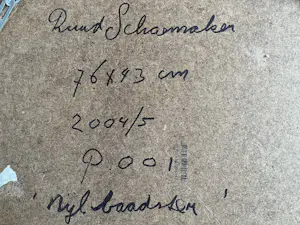 Ruud Schoemaker
76x93 cm
2004/5
P.001
'Nijl baadster'